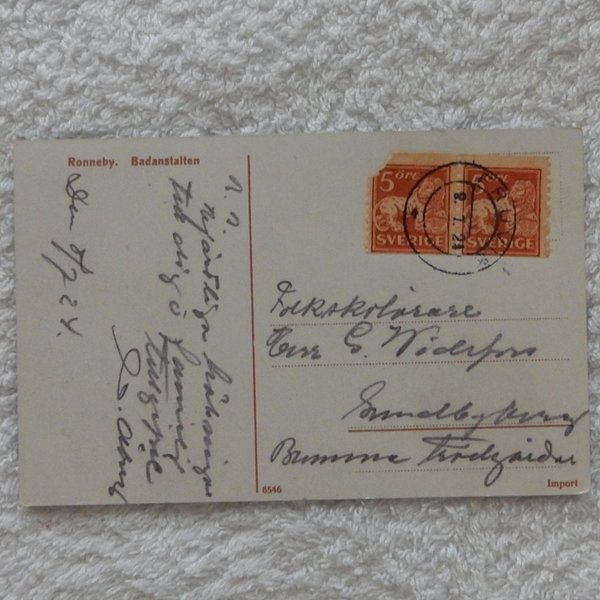 Ronneby. Badanstalten
Den 8/7 24.
hjärtliga hälsningar
till dig o familj
5 öre
SVERIGE
5 öre
SVERIGE
8.7.24
Folkskolärare
Herr G. Widefors
Sundbyberg
Bromma Trädgårdar
6546
Import